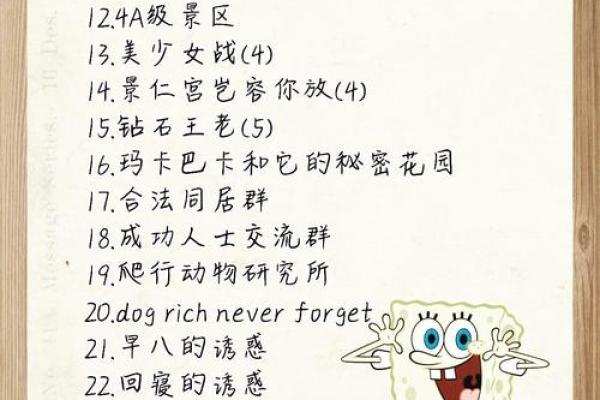 12.4A级景区
13.美少女战(4)
14.景仁宫岂容你放(4)
15.钻石王老(5)
16.玛卡巴卡和它的秘密花园
17.合法同居群
18.成功人士交流群
19.爬行动物研究所
20.dog rich never forget
21.早八的诱惑
22.回寝的诱惑